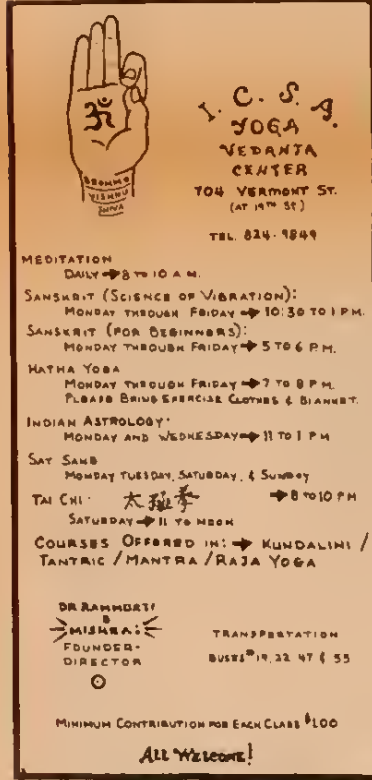 ॐ
BRAHMA
VISHNU
SHIVA
I. C. S. A.
YOGA
VEDANTA
CENTER
704 VERMONT ST.
(AT 19TH ST)
TEL. 824-9849
MEDITATION
DAILY → 8 TO 10 A.M.
SANSKRIT (SCIENCE OF VIBRATION):
MONDAY THROUGH FRIDAY → 10:30 TO 1 P.M.
SANSKRIT (FOR BEGINNERS):
MONDAY THROUGH FRIDAY → 5 TO 6 P.M.
HATHA YOGA
MONDAY THROUGH FRIDAY → 7 TO 8 P.M.
PLEASE BRING EXERCISE CLOTHES & BLANKET.
INDIAN ASTROLOGY:
MONDAY AND WEDNESDAY → 11 TO 1 PM
SAT SANG
MONDAY TUESDAY, SATURDAY, & SUNDAY
→ 8 TO 10 PM
TAI CHI: 太極拳
SATURDAY → 11 TO NOON
COURSES OFFERED IN: → KUNDALINI /
TANTRIC / MANTRA / RAJA YOGA
DR RAMMURTI
S
MISHRA:
FOUNDER-
DIRECTOR
TRANSPORTATION
BUSES # 19, 22 47 & 53
MINIMUM CONTRIBUTION FOR EACH CLASS $1.00
ALL WELCOME!